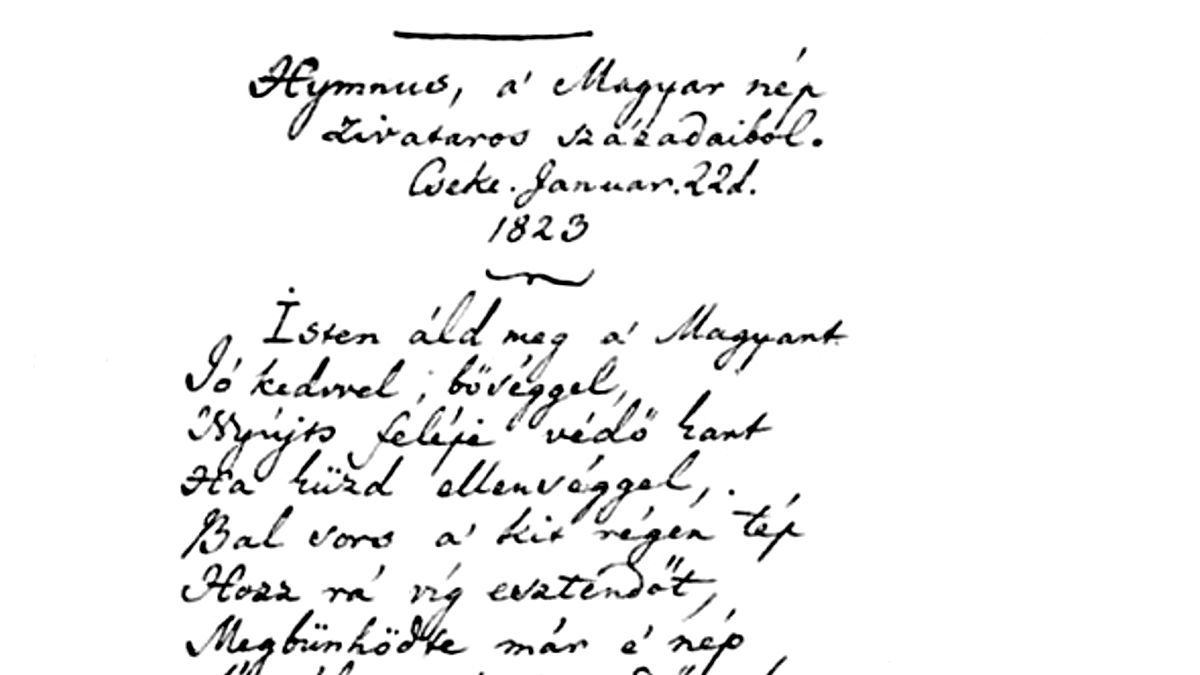 Hymnus, a' Magyar nép
zivataros századaiból.
Cseke. Januar. 22d.
1823
Isten áld meg a' Magyart
Jó kedvvel, bőséggel,
Nyújts feléje védő kart
Ha küzd ellenséggel,
Bal sors a' kit régen tép
Hozz rá víg esztendőt,
Megbünhödte már e' nép